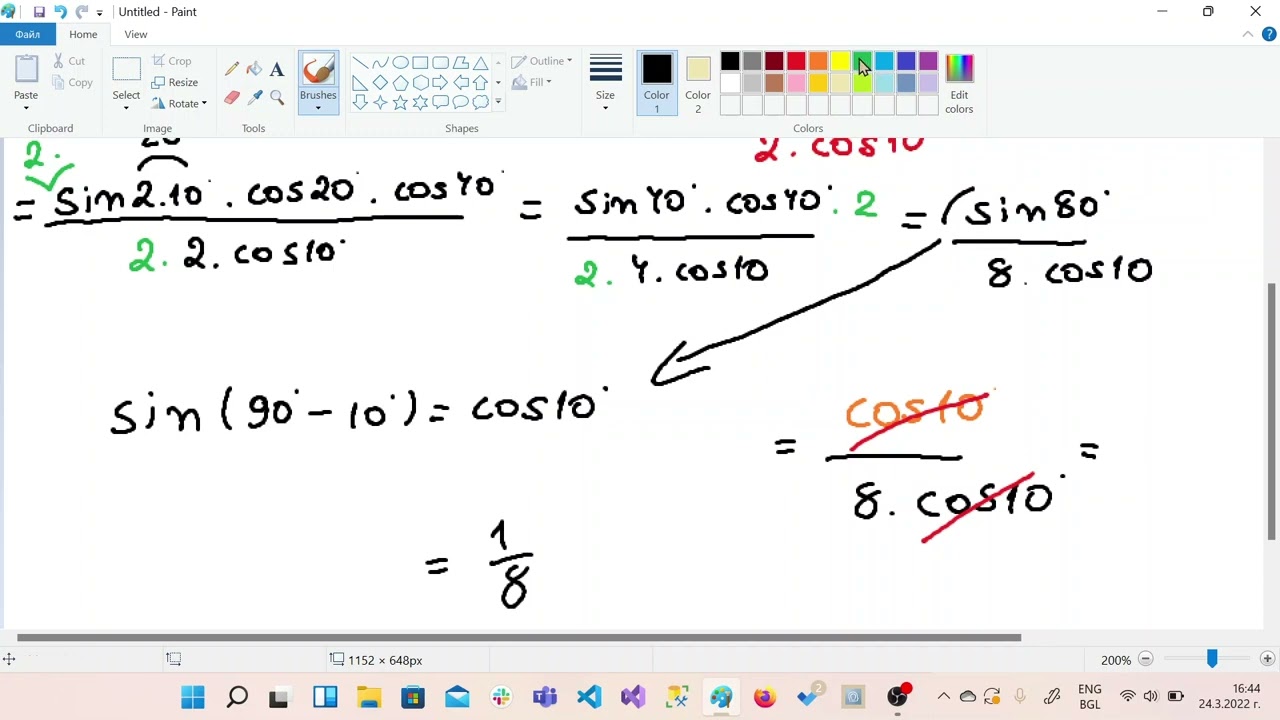 Untitled - Paint
Файл Home View
Paste Cut Copy Clipboard
Select Crop Resize Rotate Image
Tools
Brushes
Outline Fill Shapes
Size
Color 1 Color 2 Edit colors Colors
2 . cos10
2.
= sin2.10° . cos20° . cos40° / 2. 2. cos10° = sin40° . cos40° . 2 / 2. 4. cos10 = sin80° / 8. cos10
sin(90° - 10°) = cos10°
= cos10° / 8. cos10° =
= 1/8
1152 × 648px 200%
2
ENG BGL 16:44 24.3.2022 г.